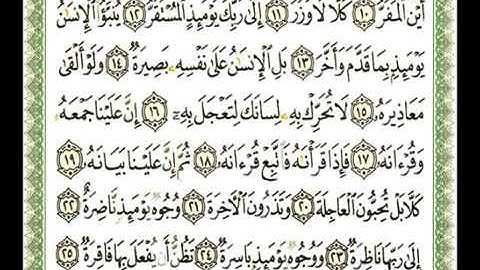 أَيْنَ ٱلْمَفَرُّ ١٠ كَلَّا لَا وَزَرَ ١١ إِلَىٰ رَبِّكَ يَوْمَئِذٍ ٱلْمُسْتَقَرُّ ١٢ يُنَبَّؤُا۟ ٱلْإِنسَٰنُ
يَوْمَئِذٍۭ بِمَا قَدَّمَ وَأَخَّرَ ١٣ بَلِ ٱلْإِنسَٰنُ عَلَىٰ نَفْسِهِۦ بَصِيرَةٌ ١٤ وَلَوْ أَلْقَىٰ
مَعَاذِيرَهُۥ ١٥ لَا تُحَرِّكْ بِهِۦ لِسَانَكَ لِتَعْجَلَ بِهِۦٓ ١٦ إِنَّ عَلَيْنَا جَمْعَهُۥ
وَقُرْءَانَهُۥ ١٧ فَإِذَا قَرَأْنَٰهُ فَٱتَّبِعْ قُرْءَانَهُۥ ١٨ ثُمَّ إِنَّ عَلَيْنَا بَيَانَهُۥ ١٩
كَلَّا بَلْ تُحِبُّونَ ٱلْعَاجِلَةَ ٢٠ وَتَذَرُونَ ٱلْءَاخِرَةَ ٢١ وُجُوهٌ يَوْمَئِذٍ نَّاضِرَةٌ ٢٢
إِلَىٰ رَبِّهَا نَاظِرَةٌ ٢٣ وَوُجُوهٌ يَوْمَئِذٍۭ بَاسِرَةٌ ٢٤ تَظُنُّ أَن يُفْعَلَ بِهَا فَاقِرَةٌ ٢٥